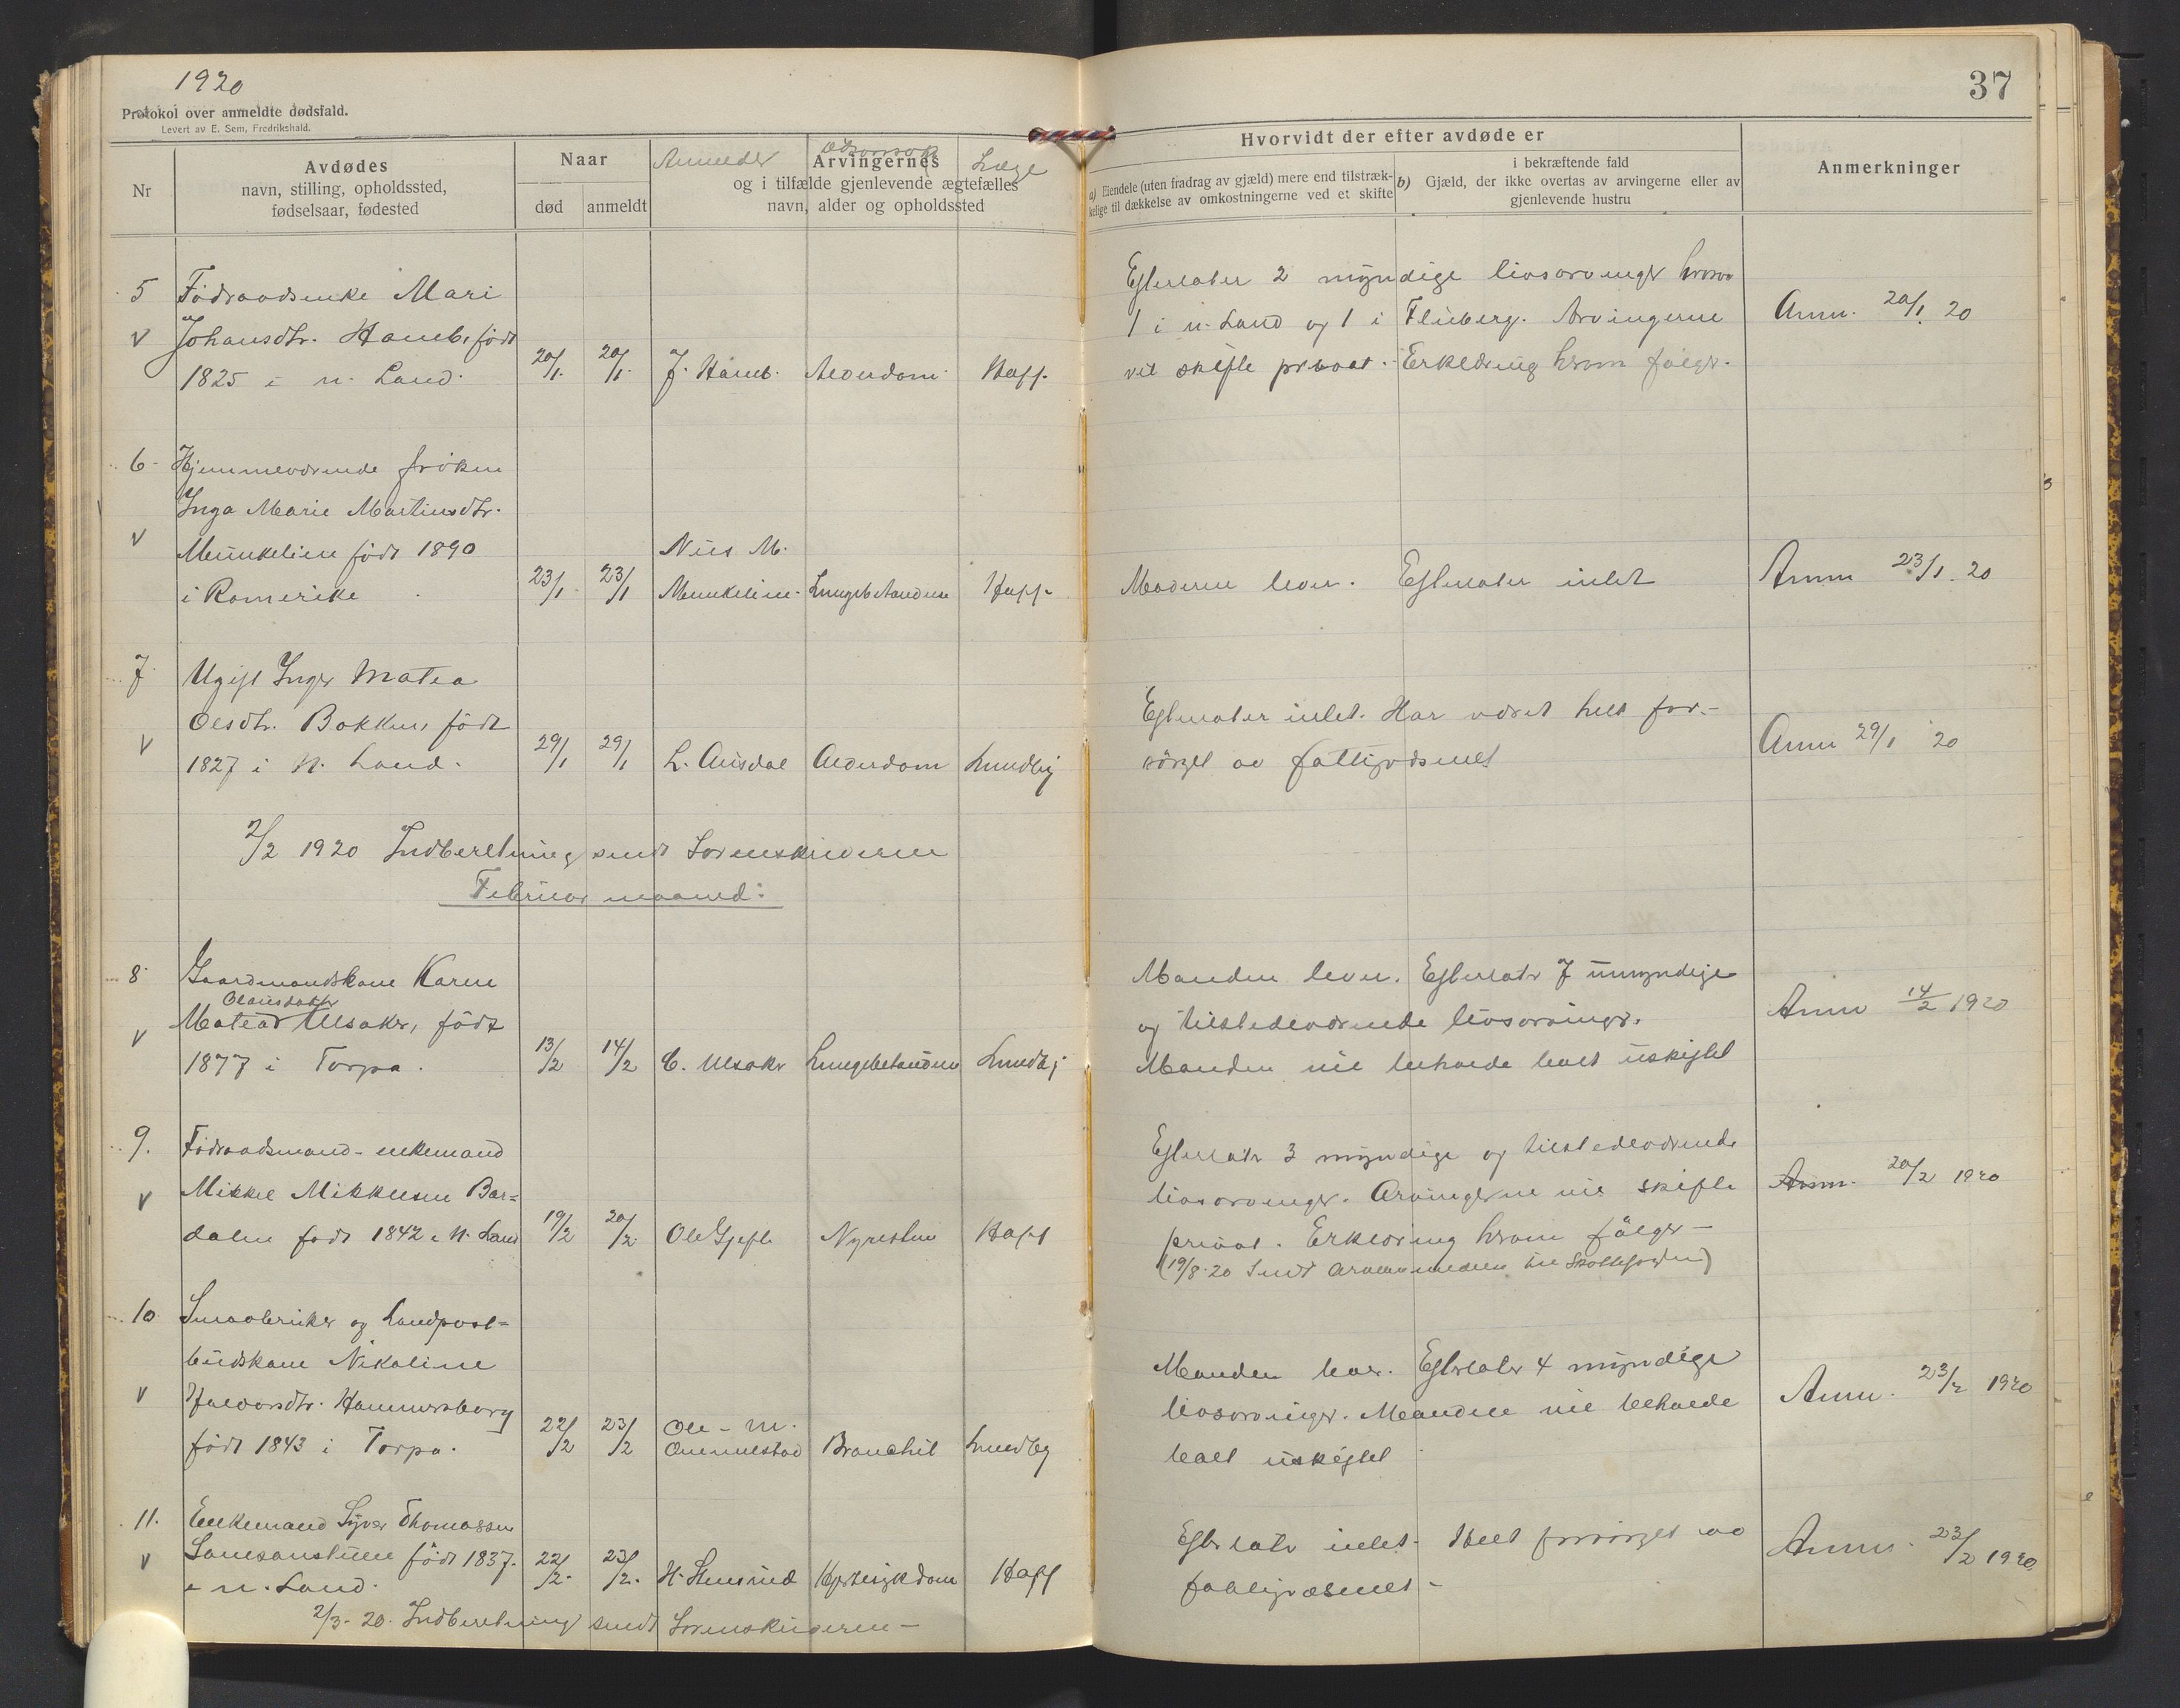 1920
Protokol over anmeldte dødsfald.
Levert av E. Sem, Fredrikshald.
37
Nr
Avdødes
navn, stilling, opholdssted,
fødselsaar, fødested
Naar
død
anmeldt
Anmelder
Arvingernes
Læge
og i tilfælde gjenlevende ægtefælles
navn, alder og opholdssted
Hvorvidt der efter avdøde er
a) Eiendele (uten fradrag av gjæld) mere end tilstræk-
kelige til dækkelse av omkostningerne ved et skifte
i bekræftende fald
b) Gjæld, der ikke overtas av arvingerne eller av
gjenlevende hustru
Anmerkninger
5 Födraadsenke Mari
v Johansdtr. Haneb, född
1825 i n. Land. 20/1. 20/1. J. Haneb. Alderdom Hoff.
Efterlater 2 myndige livsarvinger hvorav
1 i n. Land og 1 i Fluberg. Arvingerne
vil skifte privat. Erklæring herom følger.
Anm. 20/1. 20
6 Hjemmeværende frøken
Inga Marie Martinsdtr.
v Munkelien født 1890
i Romerike 23/1 23/1 Nils M.
Munkelien. Lungebetændelse Hoff.
Moderen lever. Efterlater intet
Anm 23/1. 20
7. Ugift Inger Matea
Olsdtr. Bakken, født
v 1827 i N. Land. 29/1 29/1 L. Alderdom Lundby
Efterlater intet. Har været helt for-
sørget av fattigvæsenet
Anm 29/1 20
2/2 1920 Indberetning sendt Sorenskriveren
Februar maaned:
8 Gaardmandskone Karen
Olausdatter
v Matea Ulsaker, født
1877 i Torpa. 13/2 14/2 C. Ulsaker Lungebetændelse Lundby
Manden lever. Efterlater 7 umyndige
og tilstedeværende livsarvinger.
Manden vil beholde boet uskiftet
Anm 14/2 1920
9. Födraadsmand - enkemand
v Mikkel Mikkelsen Bar=
dalen født 1842 i N. Land 19/2 20/2 Ole Gjefle Hoff
Efterlater 3 myndige og tilstedeværende
livsarvinger. Arvingerne vil skifte
privat. Erklæring herom følger -
(19/8-20 Sendt til Skattefogden)
Anm. 20/2 1920
10 Smaabruker og landpost=
budskone Nikoline
v Halvorsdtr. Hammersborg
født 1843 i Torpa. 22/2 23/2 Ole - M.
Ommelstad Bronchit Lundby
Manden lever. Efterlater 4 myndige
livsarvinger. Manden vil beholde
boet uskiftet
Anm. 23/2 1920
11. Enkemand Syver Thomassen
v født 1837. 22/2. 23/2. H. Hjertesykdom Hoff
i n. Land.
Efterlater intet. Helt forsørget av
fattigvæsenet -
Anm. 23/2 1920
2/3-20. Indberetning sendt Sorenskriveren -